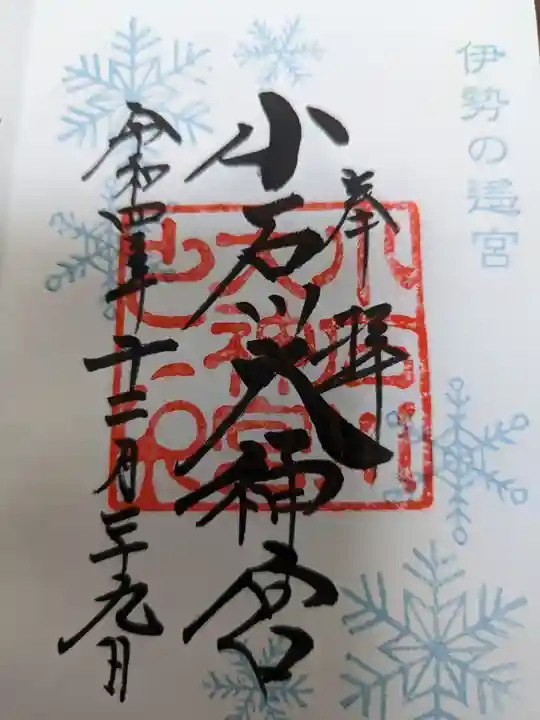 伊勢の遥宮
奉拝
小石川大神宮
令和四年十二月二十九日
小石川
大神宮
之印